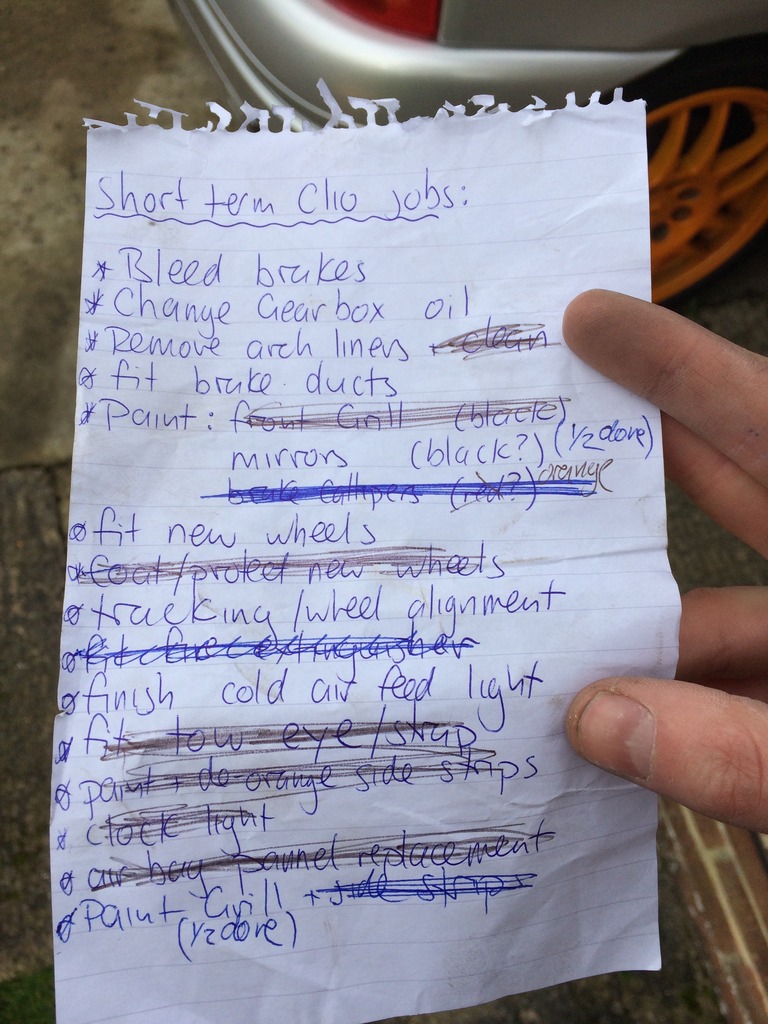 Short term Clio jobs:
* Bleed brakes
* Change Gearbox oil
* Remove arch liners + clean
* fit brake ducts
* Paint: front Grill (black)
mirrors (black?) (1/2 done)
brake callipers (red?) orange
* fit new wheels
* Coat/protect new wheels
* tracking/wheel alignment
* fit fire extinguisher
* finish cold air feed light
* fit tow eye/strap
* paint + de-orange side strips
* clock light
* air bag pannel replacement
* Paint Grill + side strip
(1/2 done)